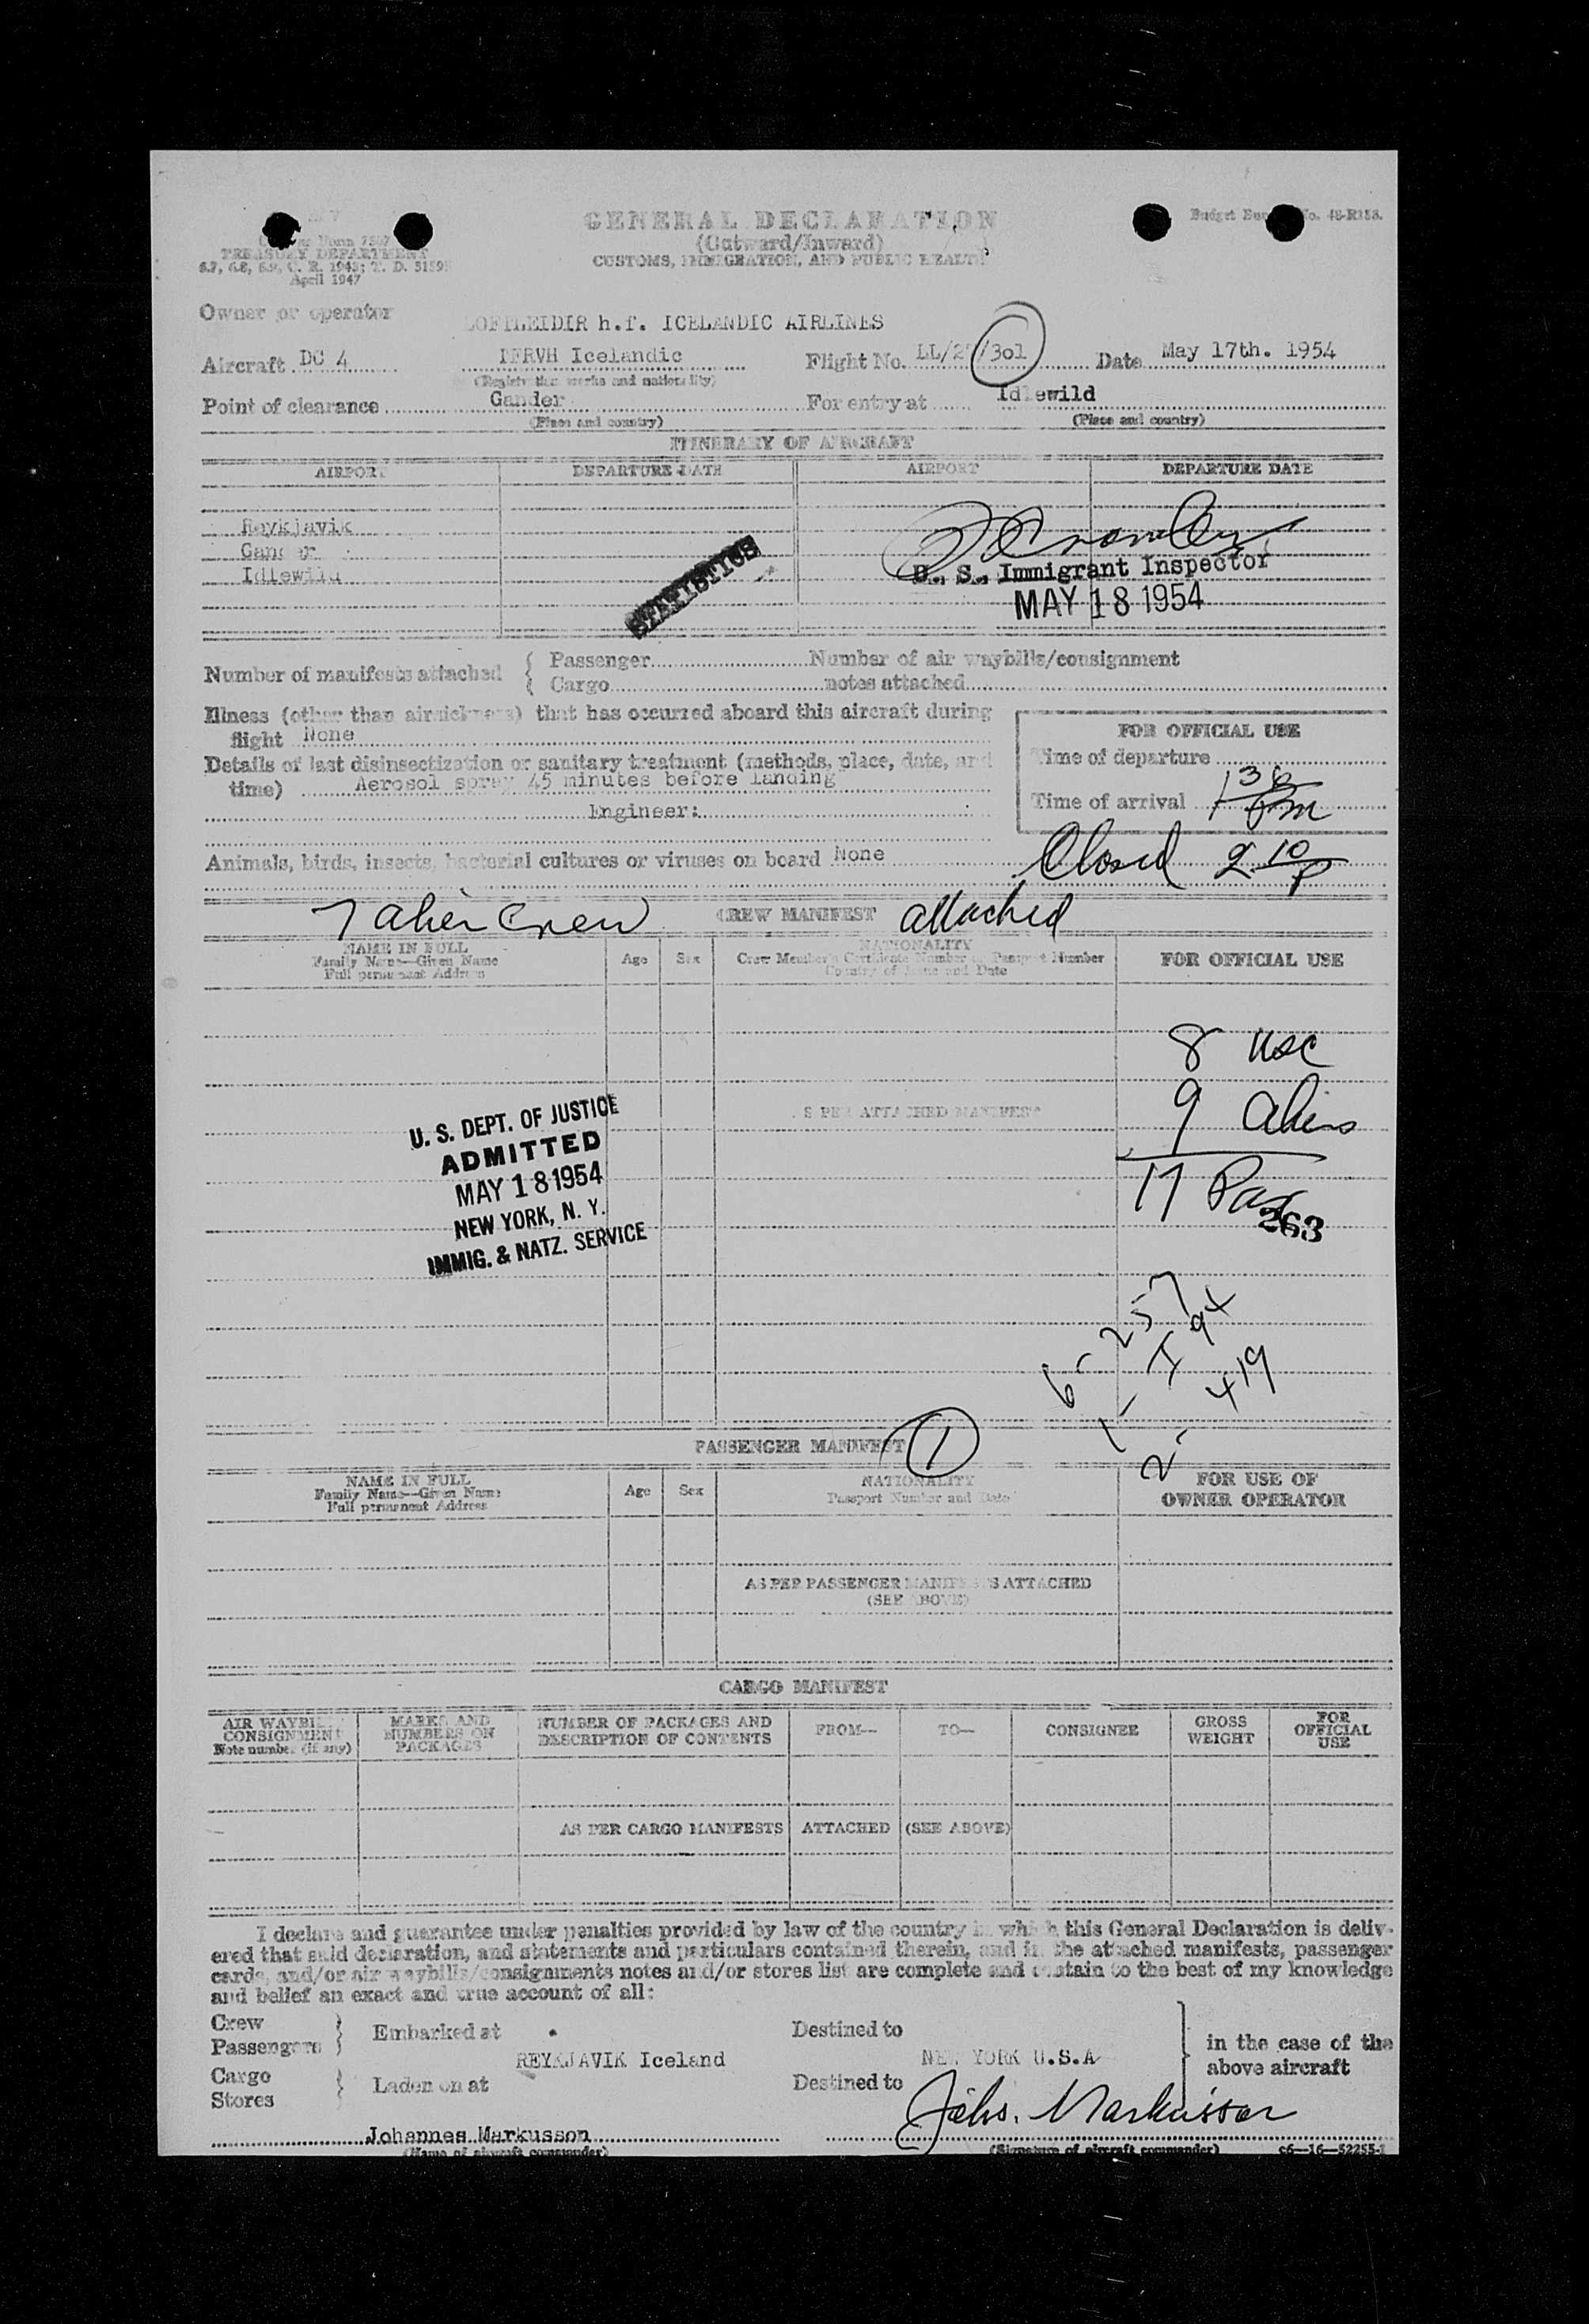 GENERAL DECLARATION
Budget No. 48-R188.
(Outward/Inward)
TREASURY DEPARTMENT
CUSTOMS, IMMIGRATION, AND PUBLIC HEALTH
6.7, 6.8, 6.9, C. R. 1943; T. D. 51595
April 1947
Owner or operator LOFTLEIDIR h.f. ICELANDIC AIRLINES
Aircraft DC 4 Icelandic Flight No. /301 Date May 17th. 1954
(Registration marks and nationality)
Point of clearance Gander For entry at Idlewild
(Place and country) (Place and country)
ITINERARY OF AIRCRAFT
AIRPORT DEPARTURE DATE AIRPORT DEPARTURE DATE
Reykjavik
Gander
Idlewild
STATISTICS
U. S. Immigrant Inspector
MAY 18 1954
Number of manifests attached { Passenger Number of air waybills/consignment
Cargo notes attached
Illness (other than airsickness) that has occurred aboard this aircraft during
flight None
FOR OFFICIAL USE
Details of last disinsectization or sanitary treatment (methods, place, date, and
time) Aerosol spray 45 minutes before landing
Time of departure
Engineer:
Time of arrival 1 30 pm
Animals, birds, insects, bacterial cultures or viruses on board None
Closed 2 10 P
Crew CREW MANIFEST attached
NAME IN FULL
Family Name—Given Name
Full permanent Address
Age Sex
NATIONALITY
Crew Member's Certificate Number or Passport Number
Country of Issue and Date
FOR OFFICIAL USE
8 USC
9 Aliens
17 Pax
263
AS PER ATTACHED MANIFEST
U. S. DEPT. OF JUSTICE
ADMITTED
MAY 18 1954
NEW YORK, N. Y.
IMMIG. & NATZ. SERVICE
6- 257
1- I 94
2- 419
PASSENGER MANIFEST 1
NAME IN FULL
Family Name—Given Name
Full permanent Address
Age Sex
NATIONALITY
Passport Number and Date
FOR USE OF
OWNER OPERATOR
AS PER PASSENGER MANIFESTS ATTACHED
(SEE ABOVE)
CARGO MANIFEST
AIR WAYBILL
CONSIGNMENT
Note number (if any)
MARKS AND
NUMBERS ON
PACKAGES
NUMBER OF PACKAGES AND
DESCRIPTION OF CONTENTS
FROM— TO— CONSIGNEE
GROSS
WEIGHT
FOR
OFFICIAL
USE
AS PER CARGO MANIFESTS ATTACHED (SEE ABOVE)
I declare and guarantee under penalties provided by law of the country in which this General Declaration is deliv-
ered that said declaration, and statements and particulars contained therein, and in the attached manifests, passenger
cards, and/or air waybills/consignments notes and/or stores list are complete and contain to the best of my knowledge
and belief an exact and true account of all:
Crew
Passengers } Embarked at Destined to
REYKJAVIK Iceland NEW YORK U.S.A
in the case of the
above aircraft
Cargo
Stores } Laden on at Destined to
Johs. Markusson
Johannes Markusson
(Name of aircraft commander) (Signature of aircraft commander) c6—16—52255-1